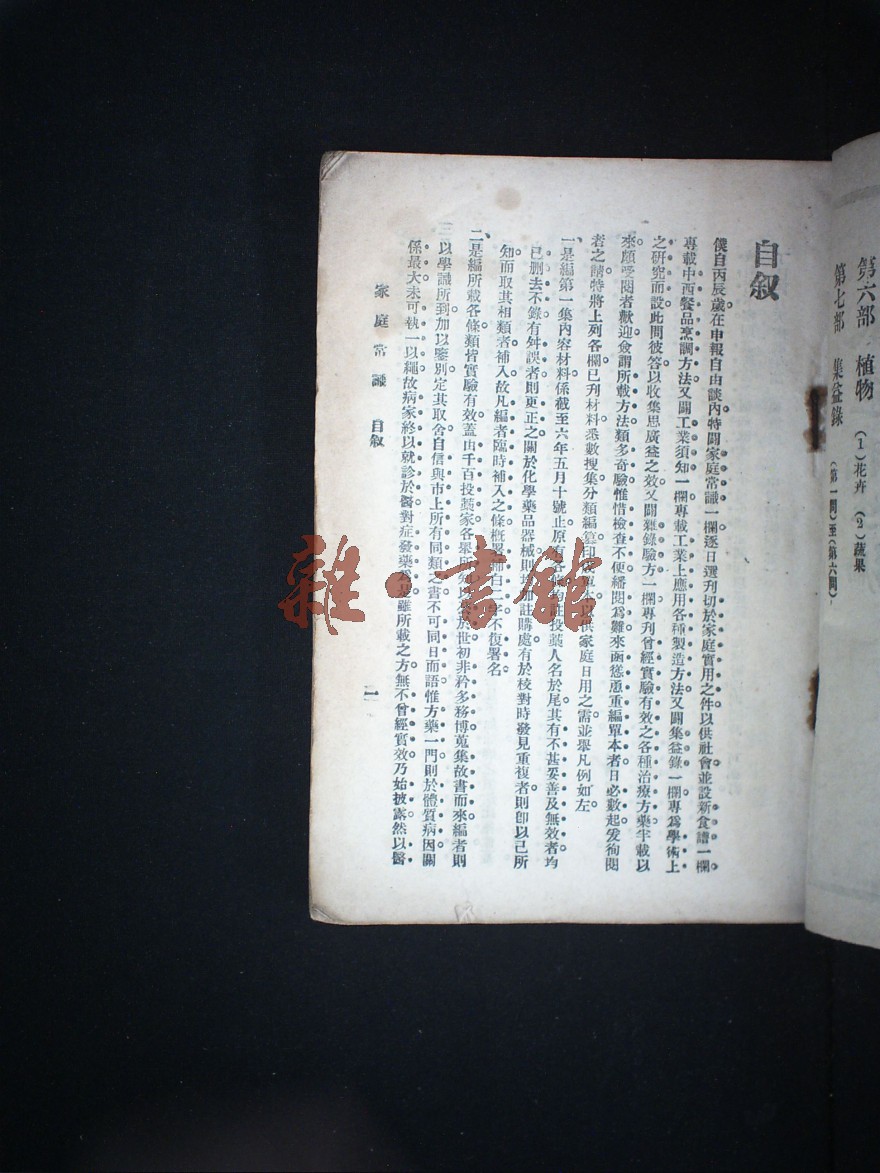 第六部 植物 (1)花卉 (2)蔬果
第七部 集益錄 (第一問)至(第六問)
自叙
僕自丙辰歲在申報自由談內特闢家庭常識一欄逐日選刋切於家庭實用之件以供社會並設新食譜一欄
專載中西餐品烹調方法又闢工業須知一欄專載工業上應用各種製造方法又闢集益錄一欄專爲學術上
之研究而設此問彼答以收集思廣益之效又闢雜錄驗方一欄專刋曾經實驗有效之各種治療方藥半載以
來頗受閱者歡迎僉謂所載方法類多奇驗惟惜檢查不便繙閱爲難來函慫恿重編單本者日必數起爰徇閱
者之請特將上列各欄已刋材料悉數搜集分類編篡印 單 以供家庭日用之需並舉凡例如左
一是編第一集內容材料係截至六年五月十號止原 投藁人名於尾其有不甚妥善及無效者均
已删去不錄有舛誤者則更正之關於化學藥品器械則 加註購處有於校對時發見重複者則卽以己所
知而取其相類者補入故凡編者臨時補入之條槪署 補白二 不復署名
二是編所載各條類皆實驗有效蓋由千百投藁家各舉所知以 於世初非矜多務博蒐集故書而來編者則
三以學識所到加以鑒別定其取舍自信與市上所有同類之書不可同日而語惟方藥一門則於體質病因關
係最大未可執一以繩故病家終以就診於醫對症發藥爲是雖所載之方無不曾經實效乃始披露然以醫
家庭常識 自叙
一
雜·書館